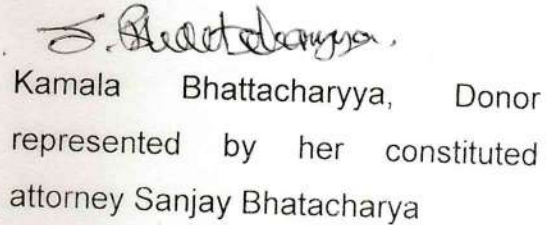 S. Bhattacharyya.
Kamala Bhattacharyya, Donor
represented by her constituted
attorney Sanjay Bhatacharya